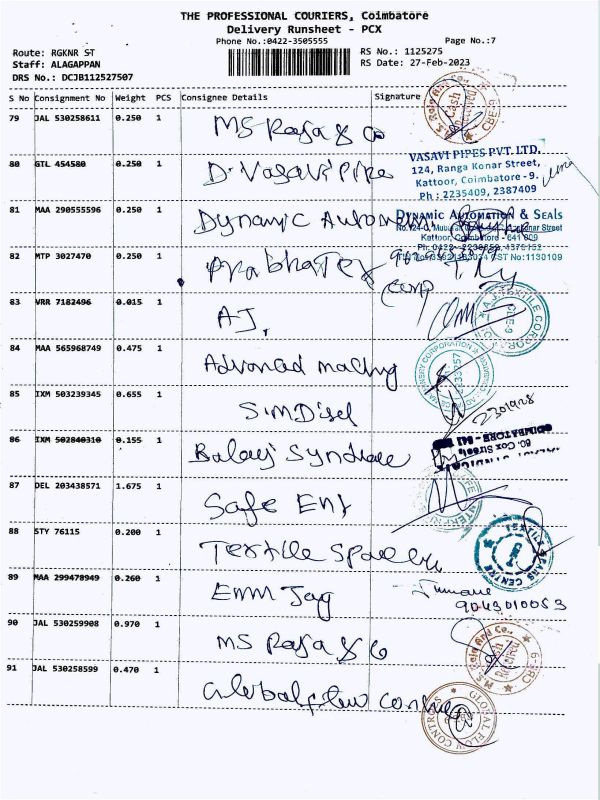 THE PROFESSIONAL COURIERS, Coimbatore
Delivery Runsheet - PCX
Phone No.:0422-3505555 Page No.:7
Route: RGKNR ST RS No.: 1125275
Staff: ALAGAPPAN RS Date: 27-Feb-2023
DRS No.: DCJB112527507
S No Consignment No Weight PCS Consignee Details Signature
79 JAL 530258611 0.250 1 MS Raja & Co
M.S. Raja And Co., Cash Received CBE-9
80 GTL 454580 0.250 1 D. Vasavi Pipe
VASAVI PIPES PVT. LTD.
124, Ranga Konar Street,
Kattoor, Coimbatore - 9.
Ph : 2235409, 2387409
81 MAA 290555596 0.250 1 Dynamic Automan
DYNAMIC AUTOMATION & SEALS
Konar Street
Kattoor, Coimbatore - 641 009
CST No:1130109
82 MTP 3027470 0.250 1 Prabha Tex
Corp
83 VRR 7182496 0.015 1 A.J.
A.J. TEXTILE CORPORA
84 MAA 565968749 0.475 1 Advanced
CORPORATION
85 IXM 503239345 0.655 1 Sim Disel
2301928
86 IXM 502840310 0.155 1 Balaji Syndicate
80, Cox Street,
COIMBATORE - 641
87 DEL 203438571 1.675 1 Safe Ent
88 STY 76115 0.200 1 Textile Spares
TEXTILE SPARES CENTRE
89 MAA 299478949 0.260 1 Emm Jay
9043010053
90 JAL 530259908 0.970 1 MS Raja & Co
M.S. Raja And Co., Cash Received CBE-9
91 JAL 530258599 0.470 1 Global flow
GLOBAL FLOW CONTROLS